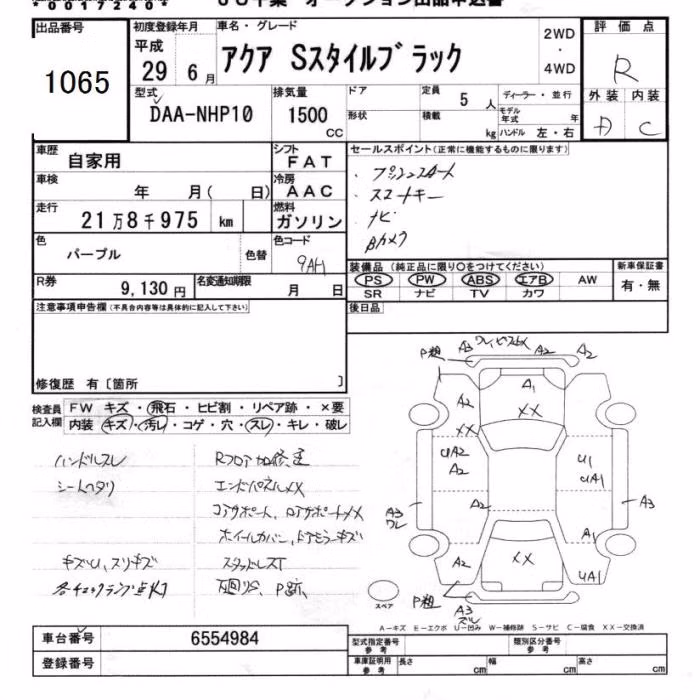 00172401
ＪＵ千葉 オークション出品申込書
出品番号
1065
初度登録年月
平成
29 6月
車名・グレード
アクア Sスタイルブラック
2WD
・
4WD
評価点
R
外装 内装
A C
型式
DAA-NHP10
排気量
1500
CC
ドア
形状
定員
5 人
積載
kg
ディーラー・並行
モデル年式 年
ハンドル 左・右
車歴
自家用
シフト
FAT
車検
年 月( 日)
冷房
AAC
走行
21万8千975 km
燃料
ガソリン
色
パープル
色替
色コード
9AH
R券
9,130円
名変通知期限
月 日
セールスポイント(正常に機能するものに限ります)
・プッシュスタート
・スマートキー
・ナビ
・Bカメラ
装備品(純正品に限り〇をつけてください)
PS PW ABS エアB AW
SR ナビ TV カワ
新車保証書
有・無
後日品
注意事項申告欄(不具合内容等は具体的に記入して下さい)
修復歴 有〔箇所 〕
検査員記入欄
FW キズ・飛石・ヒビ割・リペア跡・×要
内装 キズ・汚レ・コゲ・穴・スレ・キレ・破レ
ハンドルスレ
シートヘタリ
キズU、スリキズ
各チェックランプ点灯
Rフロア加修正
エンドパネルXX
コアサポート、ロアサポートXX
ホイールカバー、ドアミラーキズ
スタッドレスT
下回りS、P跡、
P粗 A3 A2 A2
A1
A2 XX
XX
UA2
A2
U1
UA1
A2
A3
ワレ
A3
A1
A2 XX
UA1
P粗
A3
スレ
スペア
A-キズ E-エクボ U-凹み W-補修跡 S-サビ C-腐食 XX-交換済
車台番号
6554984
登録番号
型式指定番号
参考
類別区分番号
参考
車庫証明用
参考
長さ cm
幅 cm
高さ cm